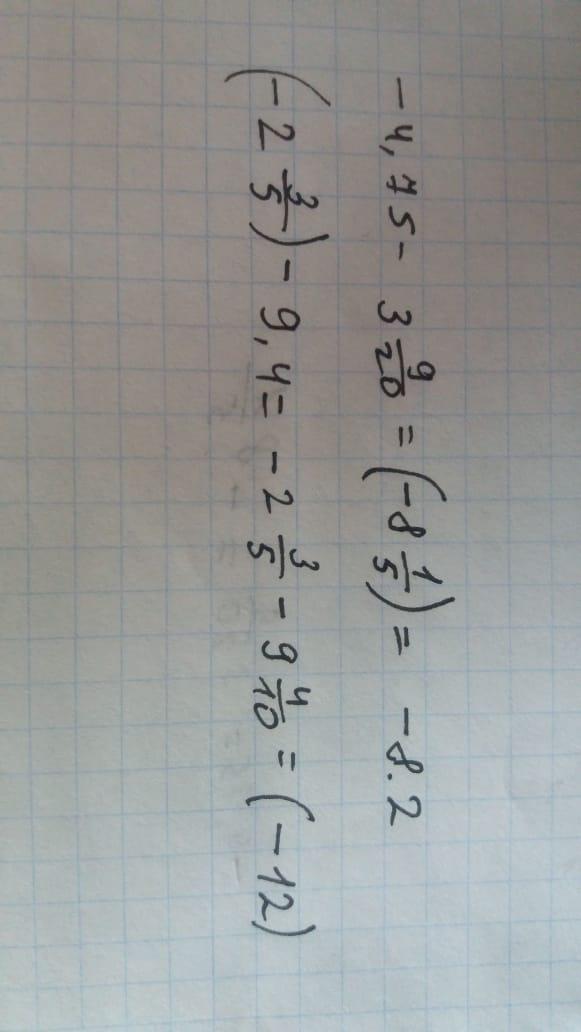 -4,75 - 3 9/20 = (-8 1/5) = -8.2
(-2 3/5) - 9,4 = -2 3/5 - 9 4/10 = (-12)